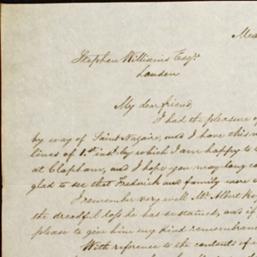 Mea
Stephen Williams Esqr.
London
My dear friend,
I had the pleasure o
by way of Saint Nazaire, and I have this m
lines of 1st inst by which I am happy to
at Clapham, and I hope you may long co
glad to see that Frederick and family were
I remember very well Mr. Albert
the dreadful loss he has sustained, and if
please to give him my kind remembran
With reference to the contents of